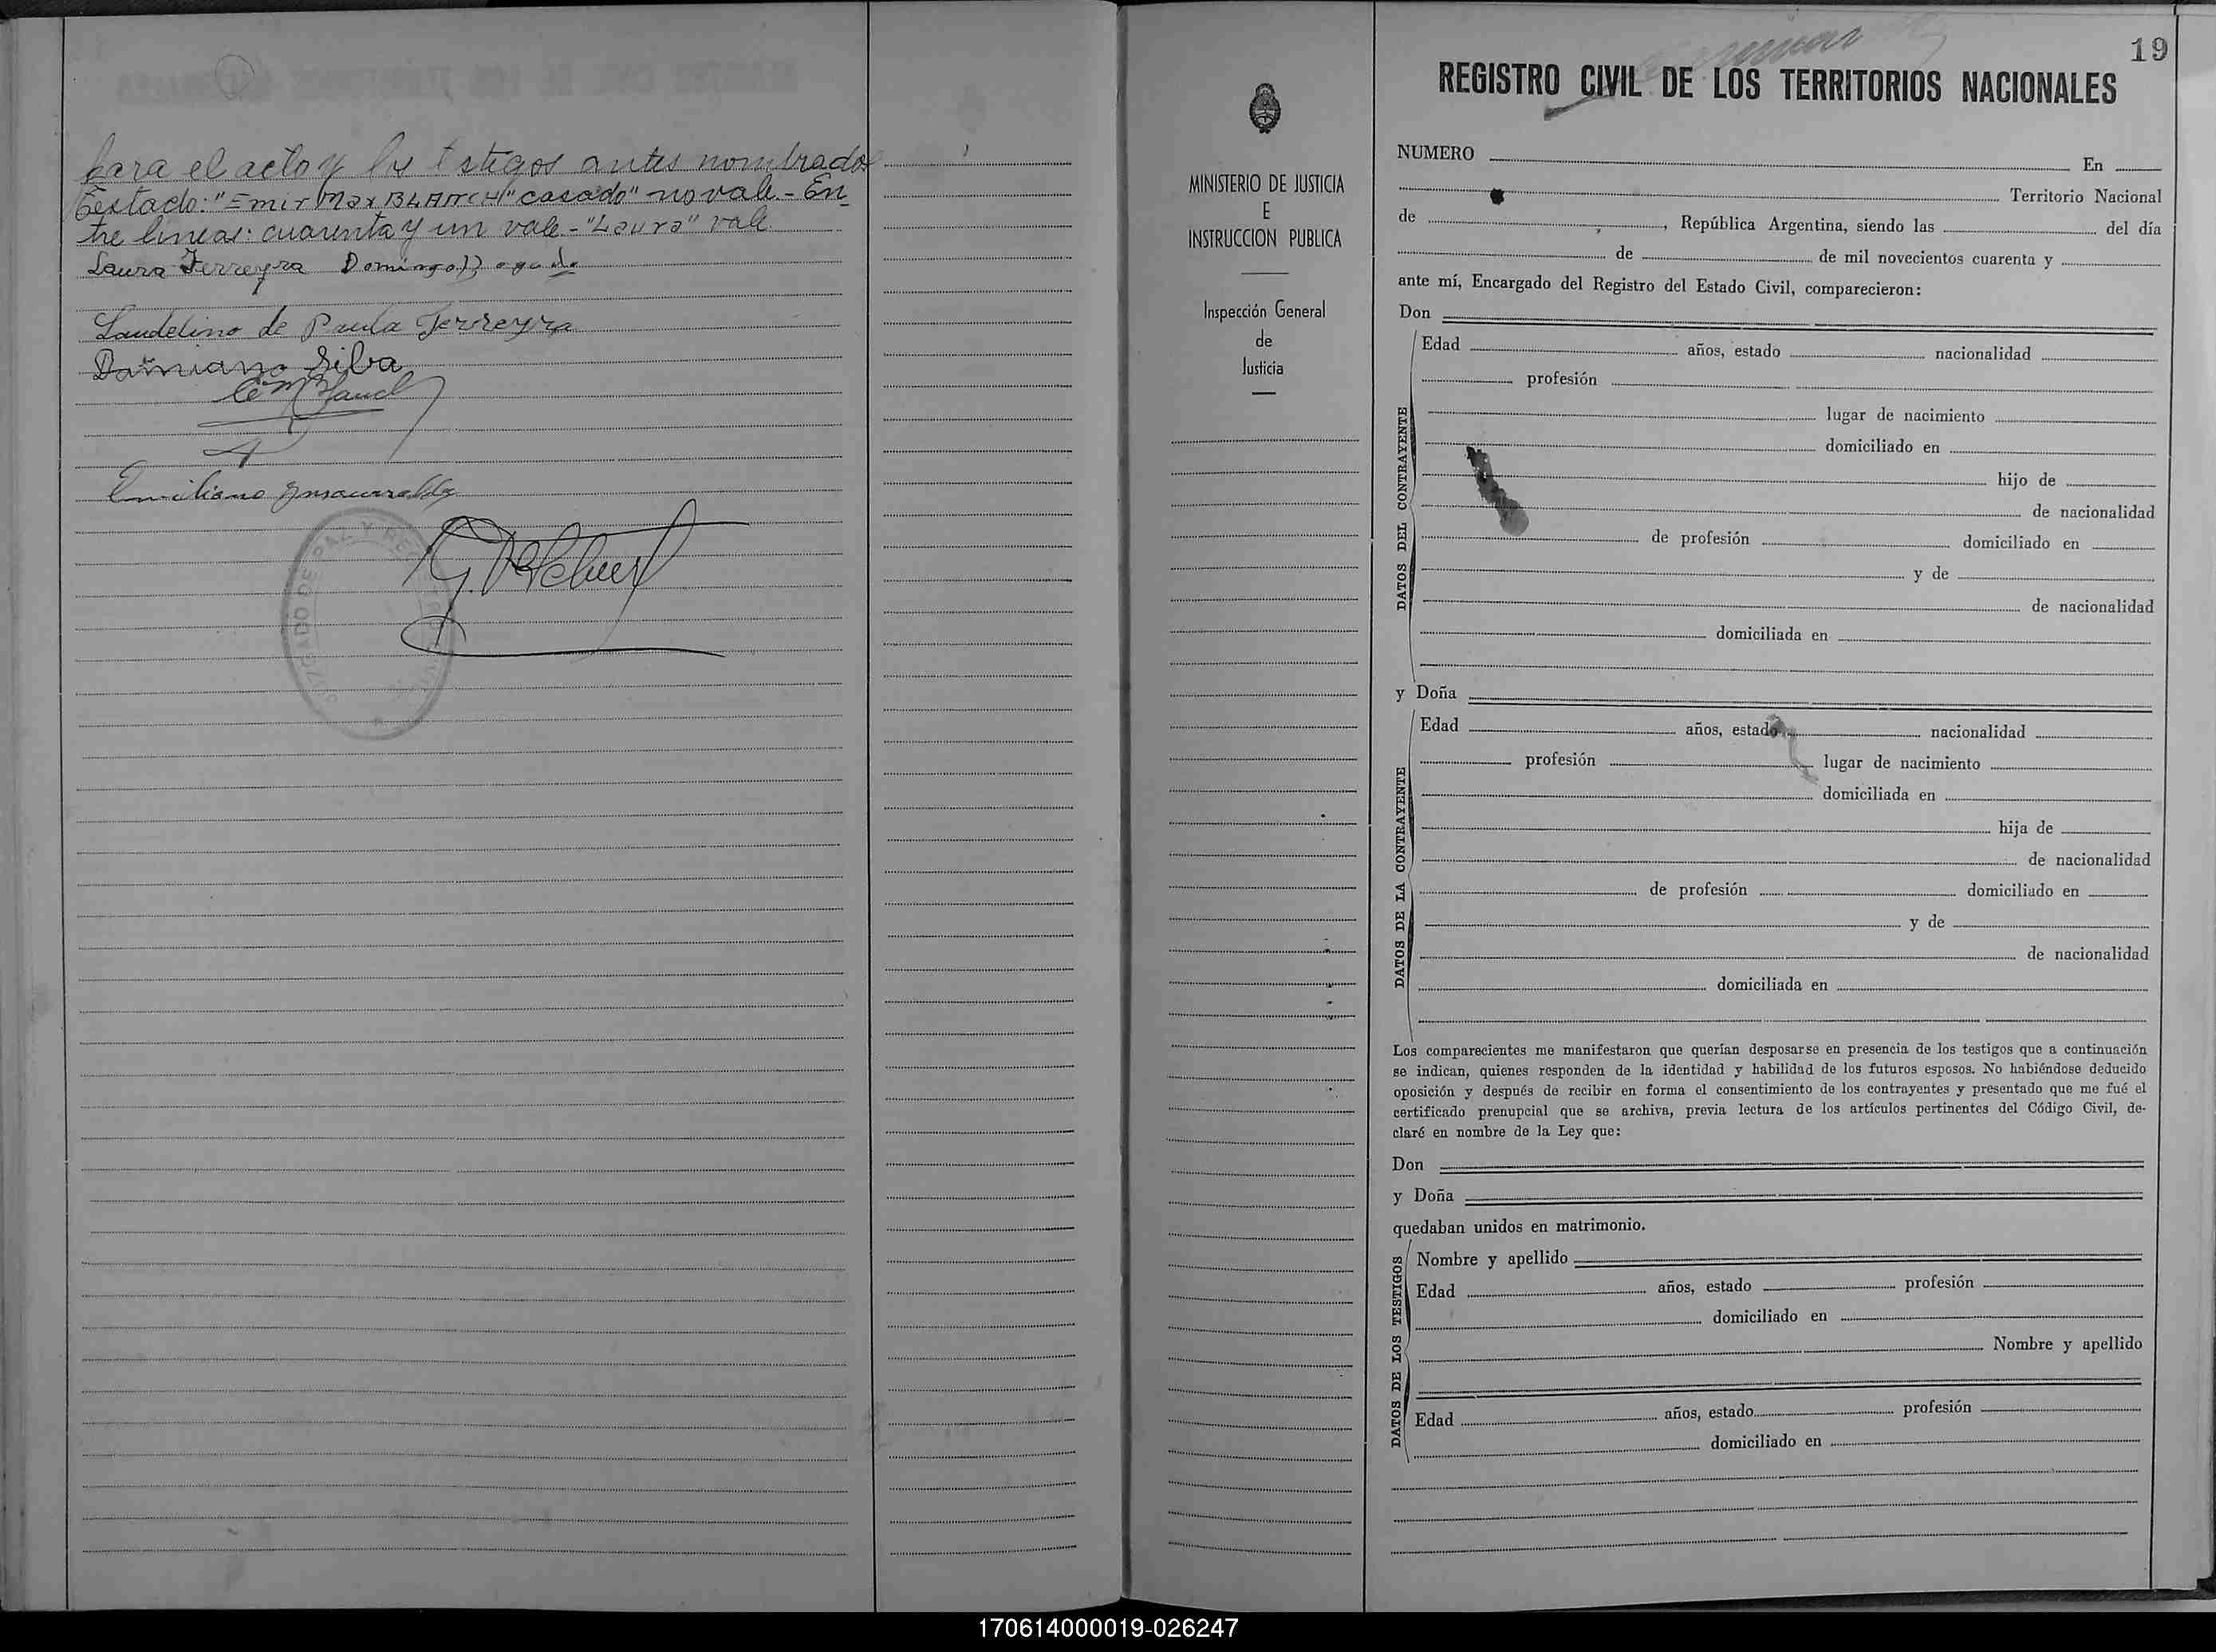 para el acto y los testigos antes nombrados
Testado: "Emir Max BLANCH" casado" no vale.- En
tre lineas: cuarenta y un vale.- "Laura" vale
Laura Ferreyra Domingo
Laudelino de Paula Ferreyra
Damiano Silva
Emiliano Insaurralde
MINISTERIO DE JUSTICIA
E
INSTRUCCION PUBLICA
Inspección General
de
Justicia
19
REGISTRO CIVIL DE LOS TERRITORIOS NACIONALES
NUMERO En
Territorio Nacional
de , República Argentina, siendo las del día
de de mil novecientos cuarenta y
ante mí, Encargado del Registro del Estado Civil, comparecieron:
Don
DATOS DEL CONTRAYENTE
Edad años, estado nacionalidad
profesión
lugar de nacimiento
domiciliado en
hijo de
de nacionalidad
de profesión domiciliado en
y de
de nacionalidad
domiciliada en
y Doña
DATOS DE LA CONTRAYENTE
Edad años, estado nacionalidad
profesión lugar de nacimiento
domiciliada en
hija de
de nacionalidad
de profesión domiciliado en
y de
de nacionalidad
domiciliada en
Los comparecientes me manifestaron que querían desposarse en presencia de los testigos que a continuación
se indican, quienes responden de la identidad y habilidad de los futuros esposos. No habiéndose deducido
oposición y después de recibir en forma el consentimiento de los contrayentes y presentado que me fué el
certificado prenupcial que se archiva, previa lectura de los artículos pertinentes del Código Civil, de-
claré en nombre de la Ley que:
Don
y Doña
quedaban unidos en matrimonio.
DATOS DE LOS TESTIGOS
Nombre y apellido
Edad años, estado profesión
domiciliado en
Nombre y apellido
Edad años, estado profesión
domiciliado en
170614000019-026247